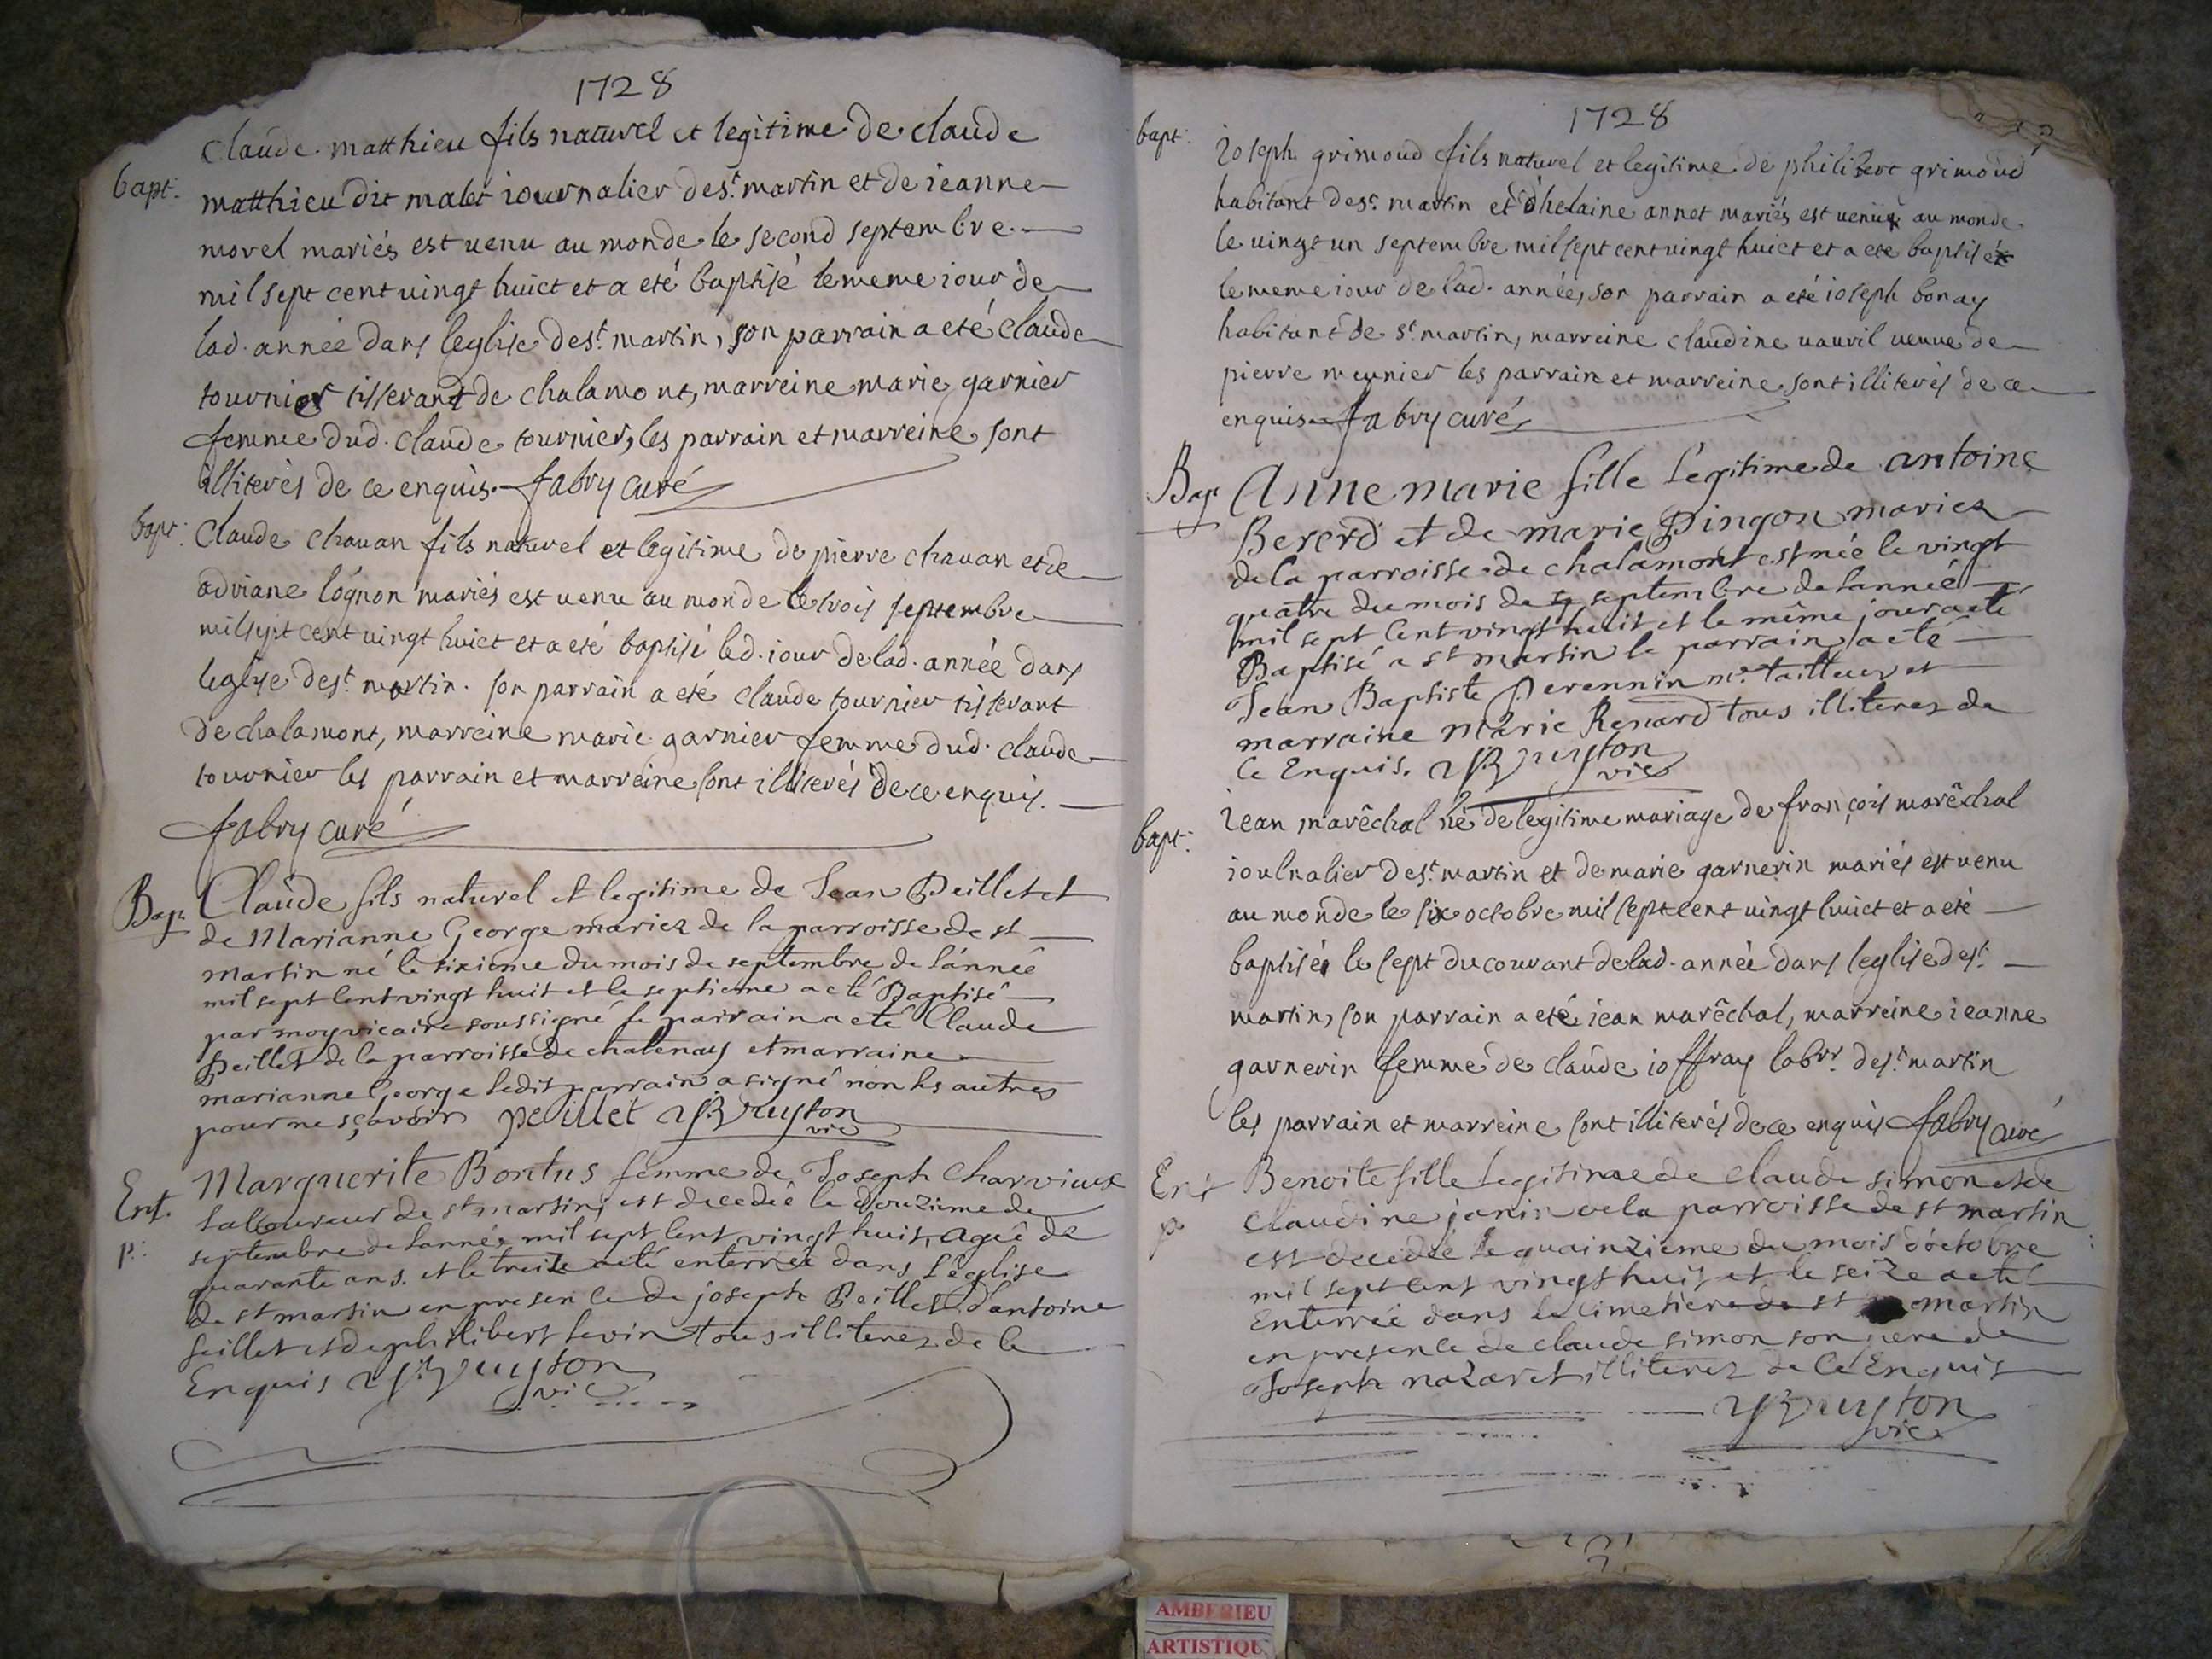 1728
bapt:
Claude matthieu fils naturel et legitime de claude
matthieu dit malet iournalier de st. martin et de ieanne
morel mariés est uenu au monde le second septembre
mil sept cent uingt huict et a eté baptisé le meme iour de
lad. année dans leglise de st. martin, son parrain a eté claude
tournier tisserant de chalamont, marreine marie garnier
femme dud. claude tournier, les parrain et marreine sont
illiterés de ce enquis. fabry curé
bapt:
Claude chauan fils naturel et legitime de pierre chauan et de
adriane lognon mariés est uenu au monde le trois septembre
mil sept cent uingt huict et a eté baptisé led. iour de lad. année dans
leglise de st. martin. son parrain a eté claude tournier tisserant
de chalamont, marreine marie garnier femme dud. claude
tournier les parrain et marreine sont illiterés de ce enquis.
fabry curé
Bap.
Claude fils naturel et legitime de Jean Peillet et
de Marianne George mariez de la parroisse de st
martin né le sixieme du mois de septembre de l'année
mil sept cent vingt huit et le septieme a eté Baptisé
par moy vicaire soussigné le parrain a eté Claude
Peillet de la parroisse de chatenay et marraine
marianne George ledit parrain a signé non les autres
pour ne sçavoir peillet Bruyston
vic
Ent.
p.
Marguerite Bontus femme de Joseph Charvieux
laboureur de st martin, est decedée le douzieme de
septembre de l'année mil sept cent vingt huit, agée de
quarante ans. et le treize a eté enterrée dans l'eglise
de st martin en presence de joseph Peillet d'antoine
peillet et de philibert levin tous illiterez de ce
Enquis Bruyston
vic
1728
bapt:
ioseph grimoud fils naturel et legitime de philibert grimoud
habitant de st. martin et d'helaine annet mariés est uenu au monde
le uingt un septembre mil sept cent uingt huict et a eté baptisé
le meme iour de lad. année, son parrain a eté ioseph bonay
habitant de st. martin, marreine claudine uauril ueuue de
pierre meunier les parrain et marreine sont illiterés de ce
enquis fabry curé
Bap
Anne marie fille legitime de antoine
Bererd et de marie Pingon mariez
de la parroisse de chalamont est née le vingt
quatre du mois de septembre de l'année
mil sept cent vingt huit et le même jour a eté
Baptisé a st martin le parrain a eté
Jean Baptiste Perennin me. tailleur et
marraine Marie Renard tous illiterez de
ce Enquis. Bruyston
vic
bapt:
iean marêchal né de legitime mariage de françois marêchal
ioulnalier de st. martin et de marie garnerin mariés est uenu
au monde le six octobre mil sept cent uingt huict et a eté
baptisé le sept du courant de lad. année dans leglise de st.
martin, son parrain a eté iean marêchal, marreine ieanne
garnerin femme de claude ioffray labrr. de st. martin
les parrain et marreine sont illiterés de ce enquis fabry curé
Ent
p
Benoite fille legitime de Claude simon et de
Claudine janin de la parroisse de st martin
est decedée le quainzieme du mois d'octobre
mil sept cent vingt huit et le seize a eté
Enterrée dans le cimetiere de st martin
en presence de claude simon son pere de
Joseph nazaret illiterez de ce Enquis
Bruyston
vic
AMBERIEU
ARTISTIQU